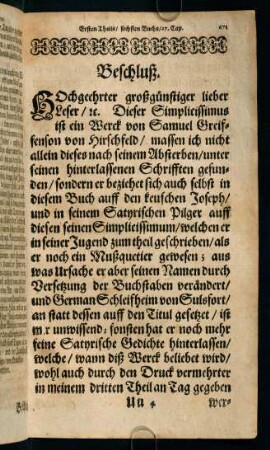 Ersten Theils/ sechsten Buchs/27. Cap. 671
Beschluß.
HOchgeehrter großgünstiger lieber
Leser/ ꝛc. Dieser Simplicissimus
ist ein Werck von Samuel Greif-
fenson von Hirschfeld/ massen ich nicht
allein dieses nach seinem Absterben/unter
seinen hinterlassenen Schrifften gefun-
den/ sondern er beziehet sich auch selbst in
diesem Buch auff den keuschen Joseph/
und in seinem Satyrischen Pilger auff
diesen seinen Simplicissimum/welchen er
in seiner Jugend zum theil geschrieben/als
er noch ein Mußquetier gewesen; aus
was Ursache er aber seinen Namen durch
Versetzung der Buchstaben verändert/
und German Schleifheim von Sulsfort/
an statt dessen auff den Titul gesetzet/ ist
mir unwissend: sonsten hat er noch mehr
feine Satyrische Gedichte hinterlassen/
welche/ wann diß Werck beliebet wird/
wohl auch durch den Druck vermehrter
in meinem dritten Theil an Tag gegeben
Uu 4 wer-